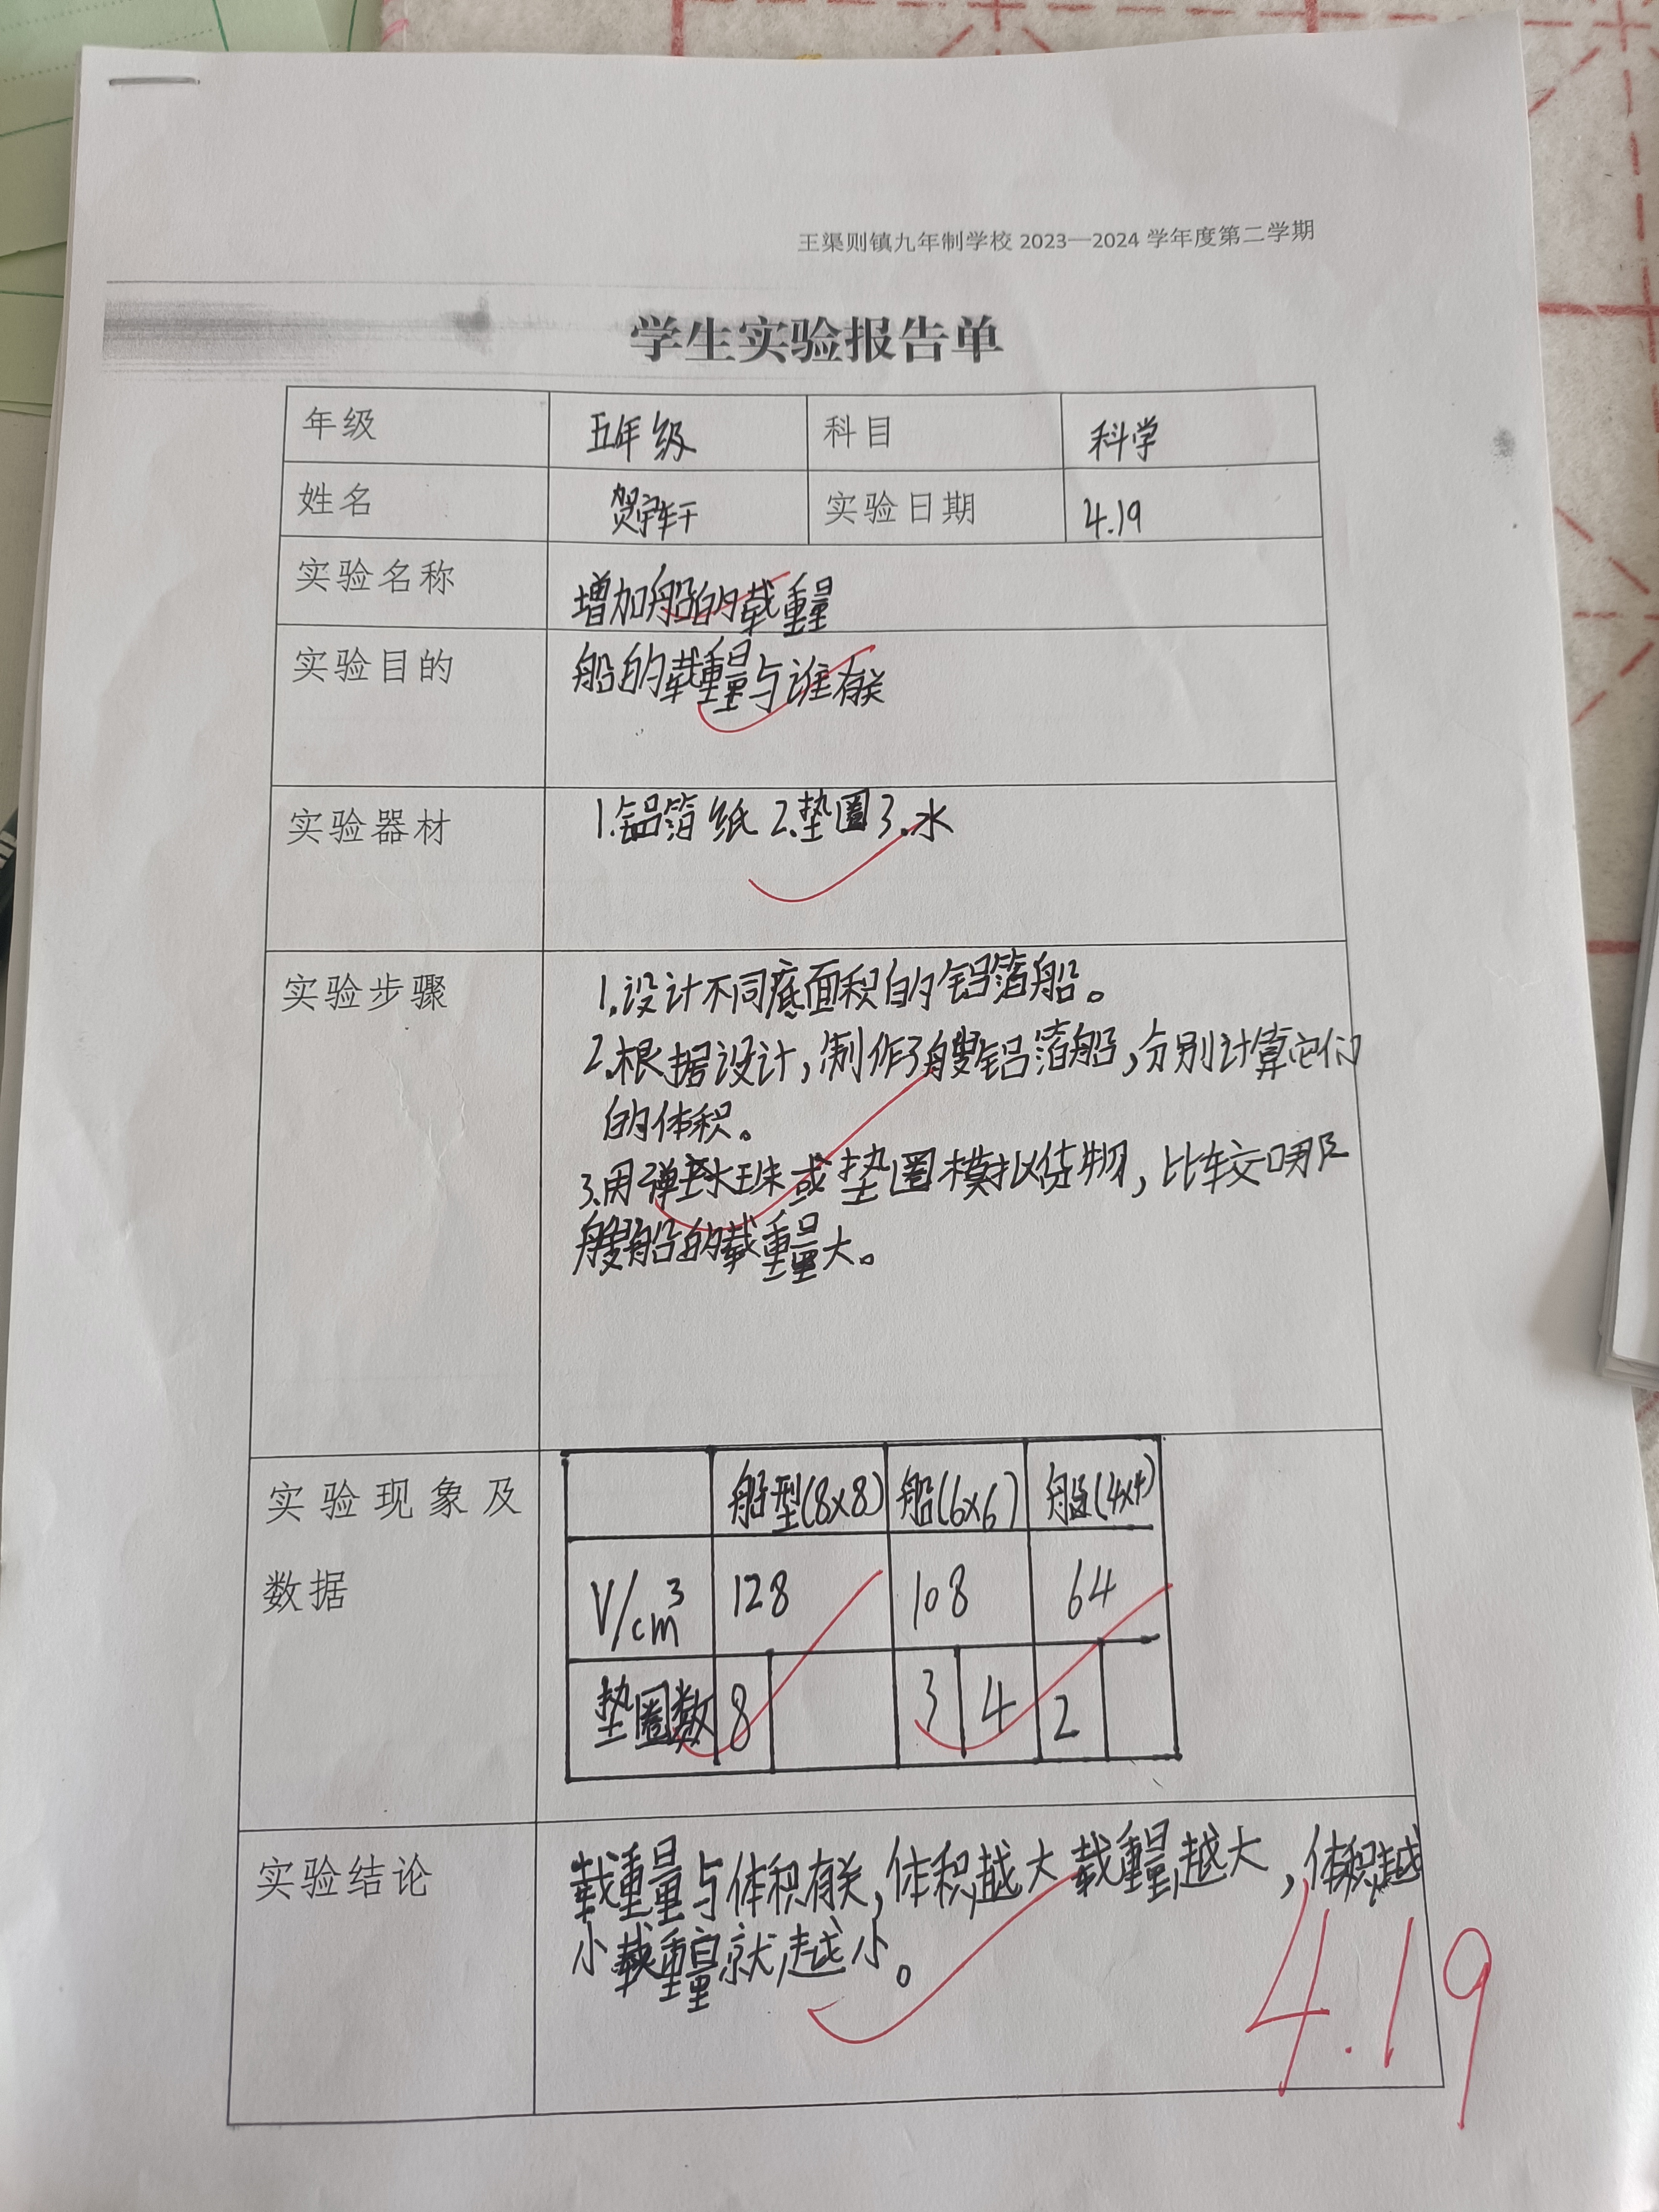 王渠则镇九年制学校 2023—2024 学年度第二学期
学生实验报告单
年级 五年级 科目 科学
姓名 贺宇轩 实验日期 4.19
实验名称 增加船的载重量
实验目的 船的载重量与谁有关
实验器材 1.铝箔纸 2.垫圈 3.水
实验步骤 1.设计不同底面积的铝箔船。
2.根据设计,制作3艘铝箔船,分别计算它们
的体积。
3.用弹球玻珠或垫圈模拟货物,比较哪
艘船的载重量大。
实验现象及
数据
船型(8x8) 船(6x6) 船(4x4)
V/cm³ 128 108 64
垫圈数 8 3 4 2
实验结论 载重量与体积有关,体积越大载重量越大,体积越
小载重量就越小。
4.19